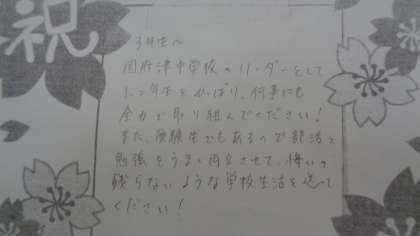 祝
3年生へ
国府津中学校のリーダーとして
1、2年生をひっぱり、何事にも
全力で取り組んでください!
また、受験生でもあるので部活と
勉強をうまく両立させて、悔いの
残らないような学校生活を送って
ください!